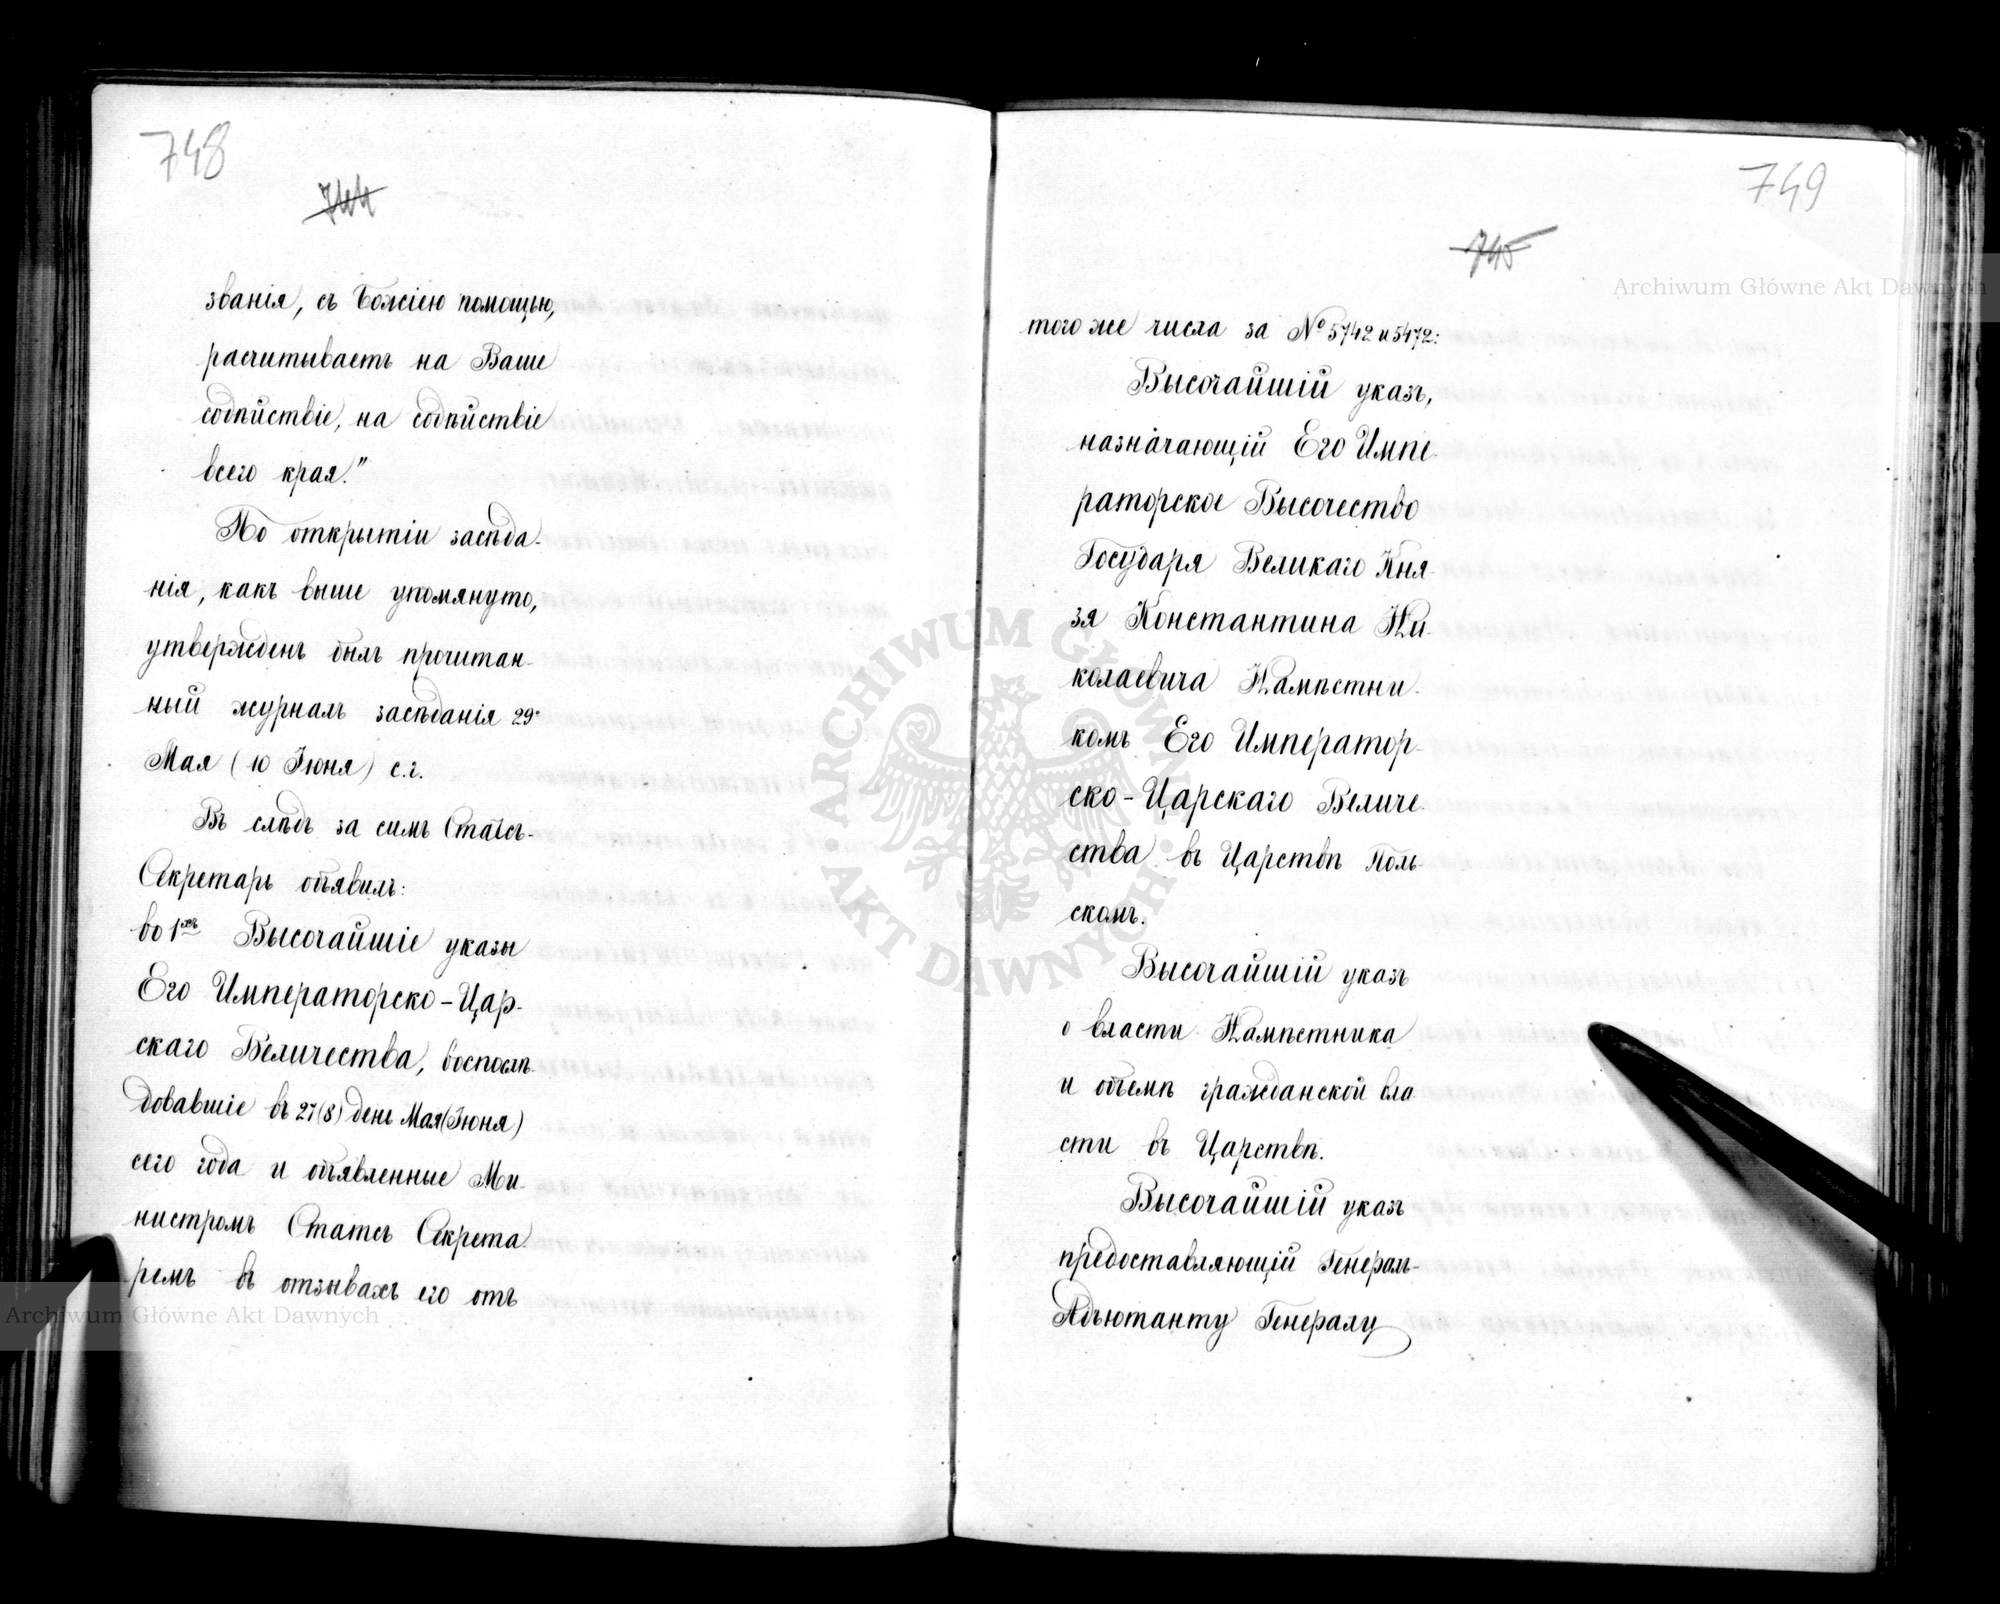 748
744
званія, съ Божіею помощью,
расчитываетъ на Ваше
содѣйствіе, на содѣйствіе
всего края."
По открытіи засѣда-
нія, какъ выше упомянуто,
утвержденъ былъ прочитан-
ный журналъ засѣданія 29
Мая (10 Іюня) с.г.
Въ слѣдъ за симъ Статсъ-
Секретарь объявилъ:
во 1хъ Высочайшіе указы
Его Императорско-Цар-
скаго Величества, воспослѣ-
довавшіе въ 27(8) день Мая(Іюня)
сего года и объявленные Ми-
нистромъ Статсъ Секрета-
ремъ въ отзывахъ его отъ
749
745
того же числа за № 5742 и 5472:
Высочайшій указъ,
назначающій Его Импе-
раторское Высочество
Государя Великаго Кня-
зя Константина Ни-
колаевича Намѣстни-
комъ Его Император-
ско-Царскаго Величе-
ства въ Царствѣ Поль-
скомъ.
Высочайшій указъ
о власти Намѣстника
и объемѣ гражданской вла-
сти въ Царствѣ.
Высочайшій указъ
предоставляющій Генералъ-
Адъютанту Генералу
ARCHIWUM GŁÓWNE AKT DAWNYCH
Archiwum Główne Akt Dawnych
Archiwum Główne Akt Dawnych